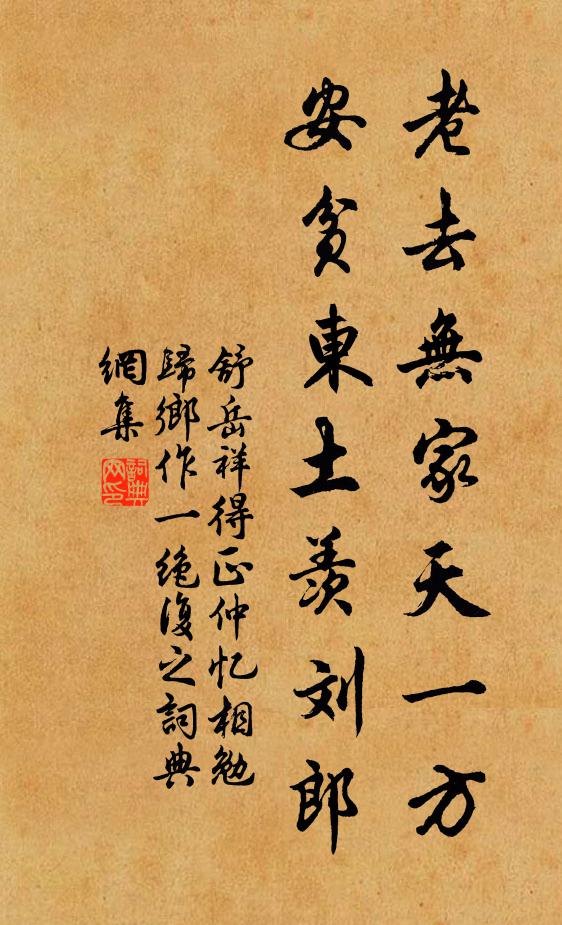 老去無家天一方
安貧東土羨刘郎
舒岳祥得正仲忆相勉
歸鄉作一绝復之詞典
網集
詞典网印